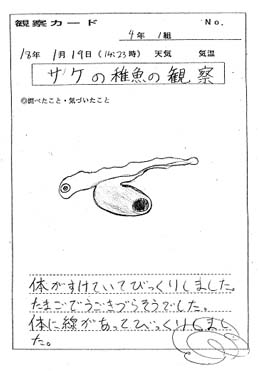 観察カード
No.
4年 1組
18年 1月19日 (14:23時) 天気 気温
サケの稚魚の観察
◎調べたこと・気づいたこと
体がすけていてびっくりしました。
たまごでうごきづらそうでした。
体に線があってびっくりしまし
た。